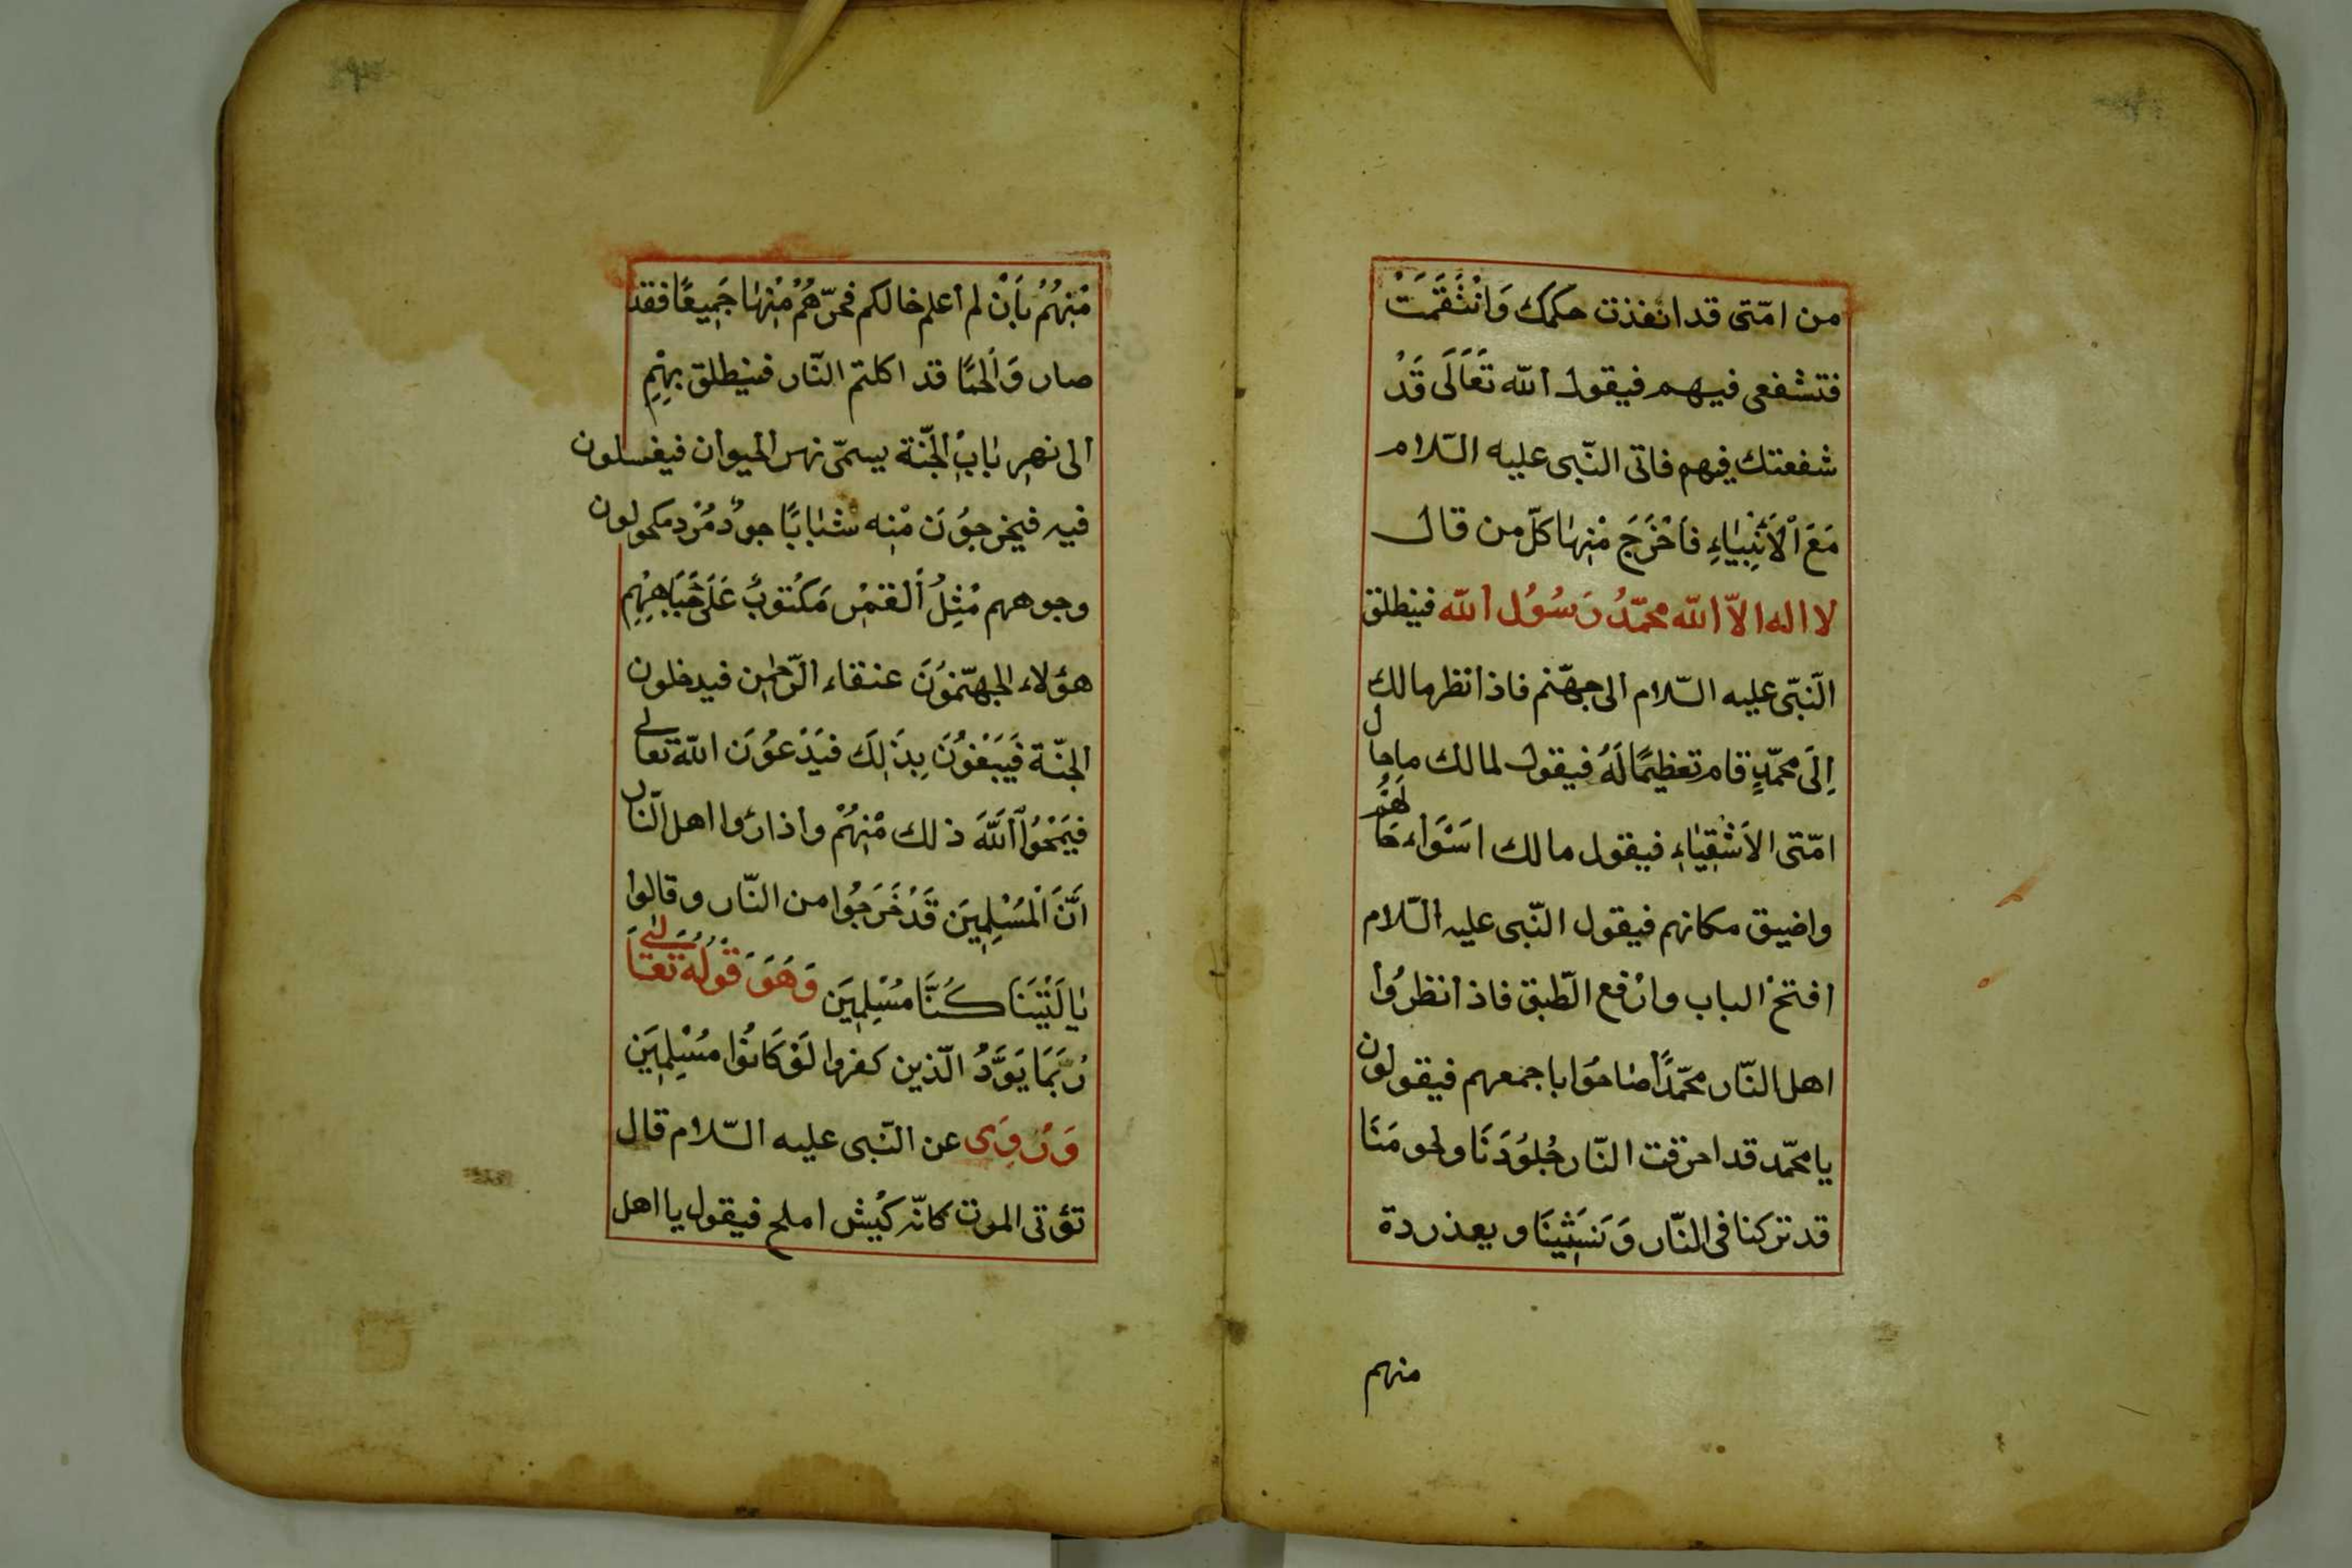 من امّتى قد انفذت حكمك وَانْتَقَمَتْ
فتشفعى فيهم فيقول اللّه تَعَالَى قَدْ
شفعتك فيهم فاتى النّبى عليه السّلام
مَعَ الْاَنْبِيَاءِ فَاَخْرَجَ مْنِهَا كلّ من قال
لا اله الاّ اللّه محمّدُ رَسُوُل اللّه فينطلق
النّبىّ عليه السّلام الى جهنّم فاذا نظر مالك
اِلَى محمّدٍ قام تعظيمًا لَهُ فيقول لمالك ما حال
امّتى الاَشْقِيَاءِ فيقول مالك اسَوْاء حَالهُمْ
واضيق مكانهم فيقول النّبى عليه السّلام
افتحْ الباب وارْفع الطّبق فاذا نظرُوا
اهل النّار محمّدًا صَاحُوا باجمعهم فيقولون
يا محمّد قد احرقت النّار جُلوُدَنَا ولحومَنَا
قد تركنا فى النّار وَنَسِيْنَا و يعذر دة
منهم
مْنِهُمُ بِاَنْ لم اعلم خالكم فخرّهُمْ مْنِهَا جَمِيعًا فقد
صار وَالحمًا قد اكلتم النّار فينطلق بِهْمِ
الى نهرِ بَابِ الجَنّة يسمّى نهر الحيوان فيغسلون
فيه فيخرجوُنَ مْنِه شَبابًا جودٌ مُرْد مكحولون
وجوههم مْثِلُ اَلْقمْرِ مَكْتوُبٌ عَلَى جَبَاهِهْمِ
هؤلاء الجهنّموُنَ عتقاء الرّحمن فيدخلون
الجنّة فَيَبْغوُنَ بِذَلِكَ فَيَدْعوُنَ اللّه تعالى
فيَمْحُوا اَللّهَ ذلك مْنِهُمْ واذا رُوا اهل النّار
اَنَّ الْمُسْلِمِيَن قَدْ خَرَجُوا من النّار و قالوا
يَا لَيْتَنَا كُنَّا مُسْلِمِيَن وَهَوَ قوُلُهُ تَعَالَى
رُبَمَا يَوَدُّ الّذين كفروا لَوْ كَانوُا مُسْلِمِيَن
وَرُوِىَ عن النّبى عليه السّلام قال
تؤتى الموت كانّه كَبْش املح فيقول يا اهل